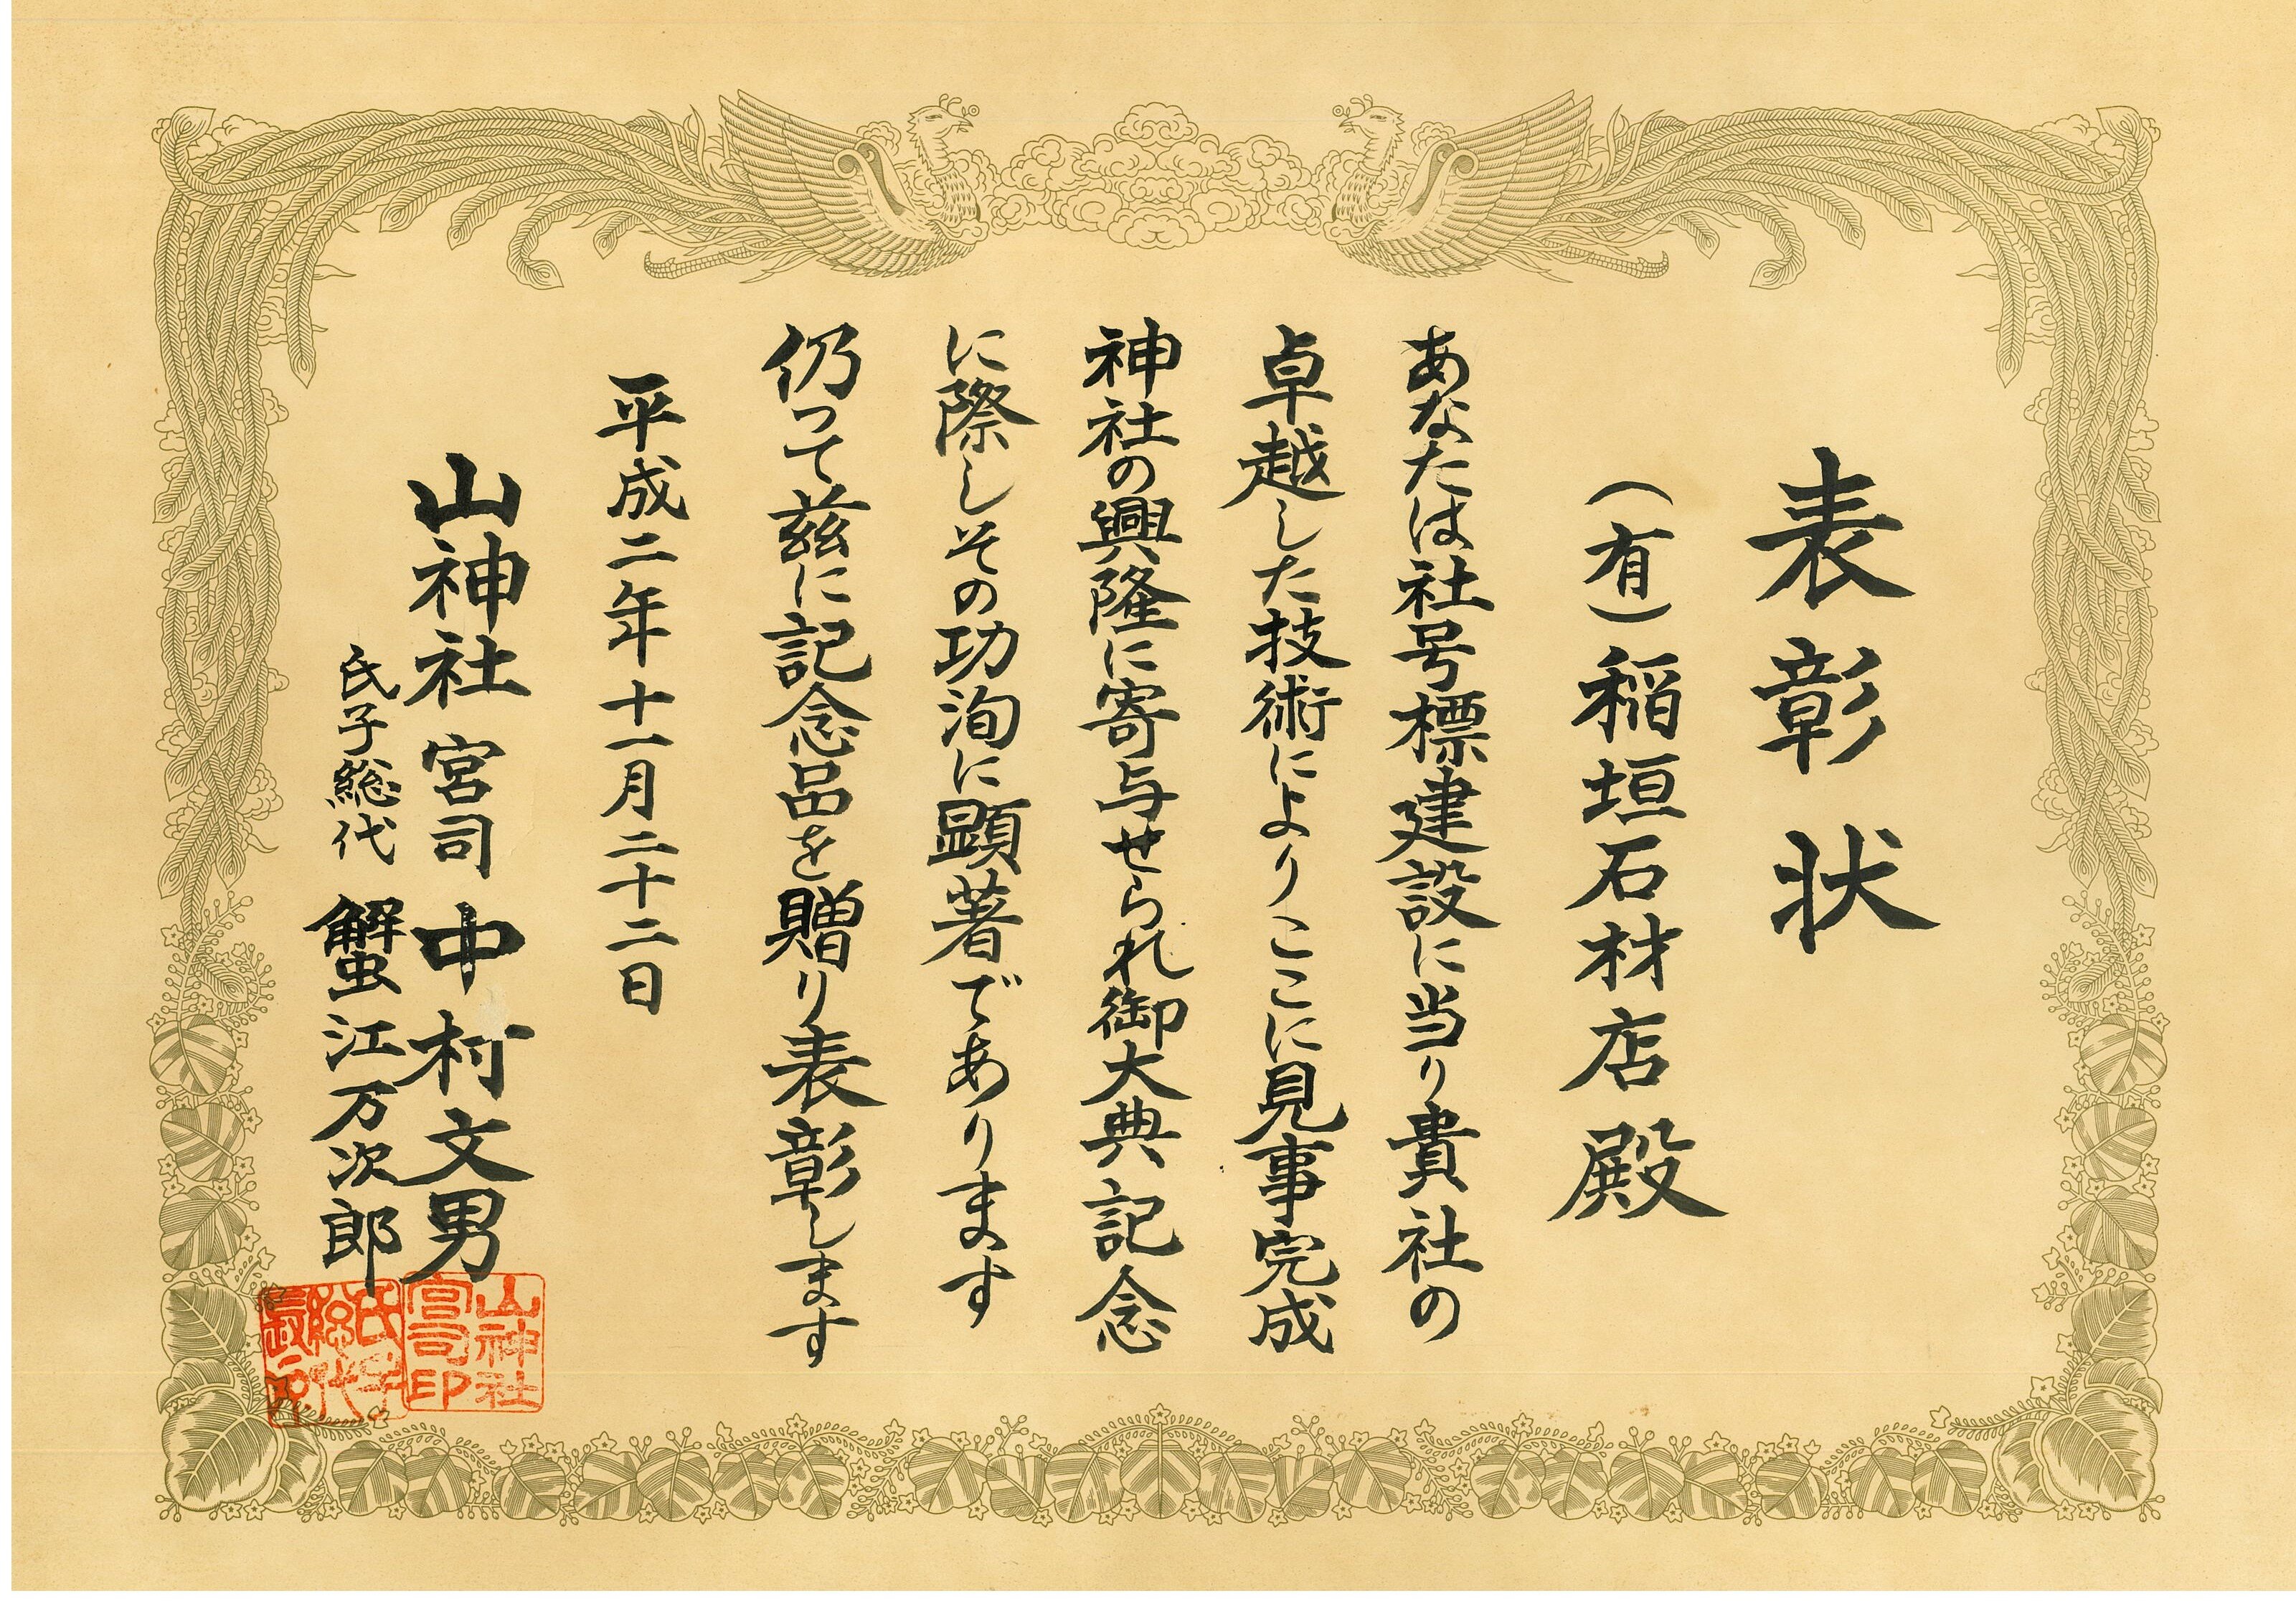 表彰状
(有)稲垣石材店殿
あなたは社号標建設に当り貴社の
卓越した技術によりここに見事完成
神社の興隆に寄与せられ御大典記念
に際しその功洵に顕著であります
仍って茲に記念品を贈り表彰します
平成二年十一月二十二日
山神社宮司中村文男
氏子総代蟹江万次郎
山神社
宮司印
氏子
総代